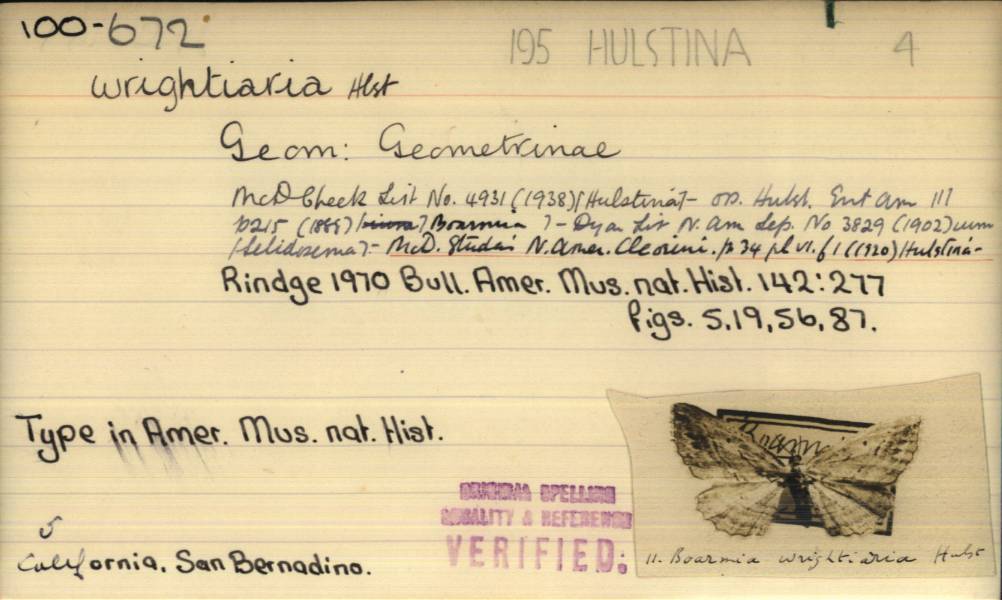 100-672
195 HULSTINA 4
wrightiaria Hlst
Geom: Geometrinae
McD Check List No. 4931 (1938) [Hulstina] - op. Hulst. Ent am III
p215 (1888) [Boarmia] - Dyar List N. Am Lep. No 3829 (1902) cum
[Selidosema] - McD. Studies N. Amer. Cleorini. p 34 pl VI. f 1 (1920) Hulstina-
Rindge 1970 Bull. Amer. Mus. nat. Hist. 142:277
figs. 5,19,56,87.
Type in Amer. Mus. nat. Hist.
ORIGINAL SPELLING
LOCALITY & REFERENCE
VERIFIED:
5
California, San Bernadino.
Boarmi
11. Boarmia wrightiaria Hulst